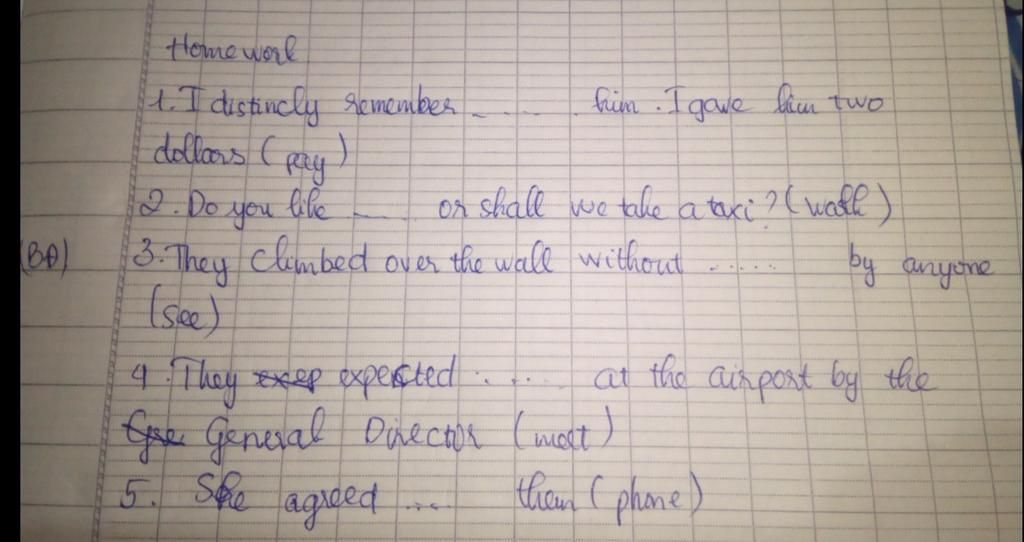 Homework
1. I distincly remember ....... him. I gave him two
dollars (pay)
2. Do you like ....... or shall we take a taxi? (walk)
(BĐ) 3. They climbed over the wall without ...... by anyone
(see)
4. They expected ...... at the airport by the
General Director (meet)
5. She agreed .... them (phone)